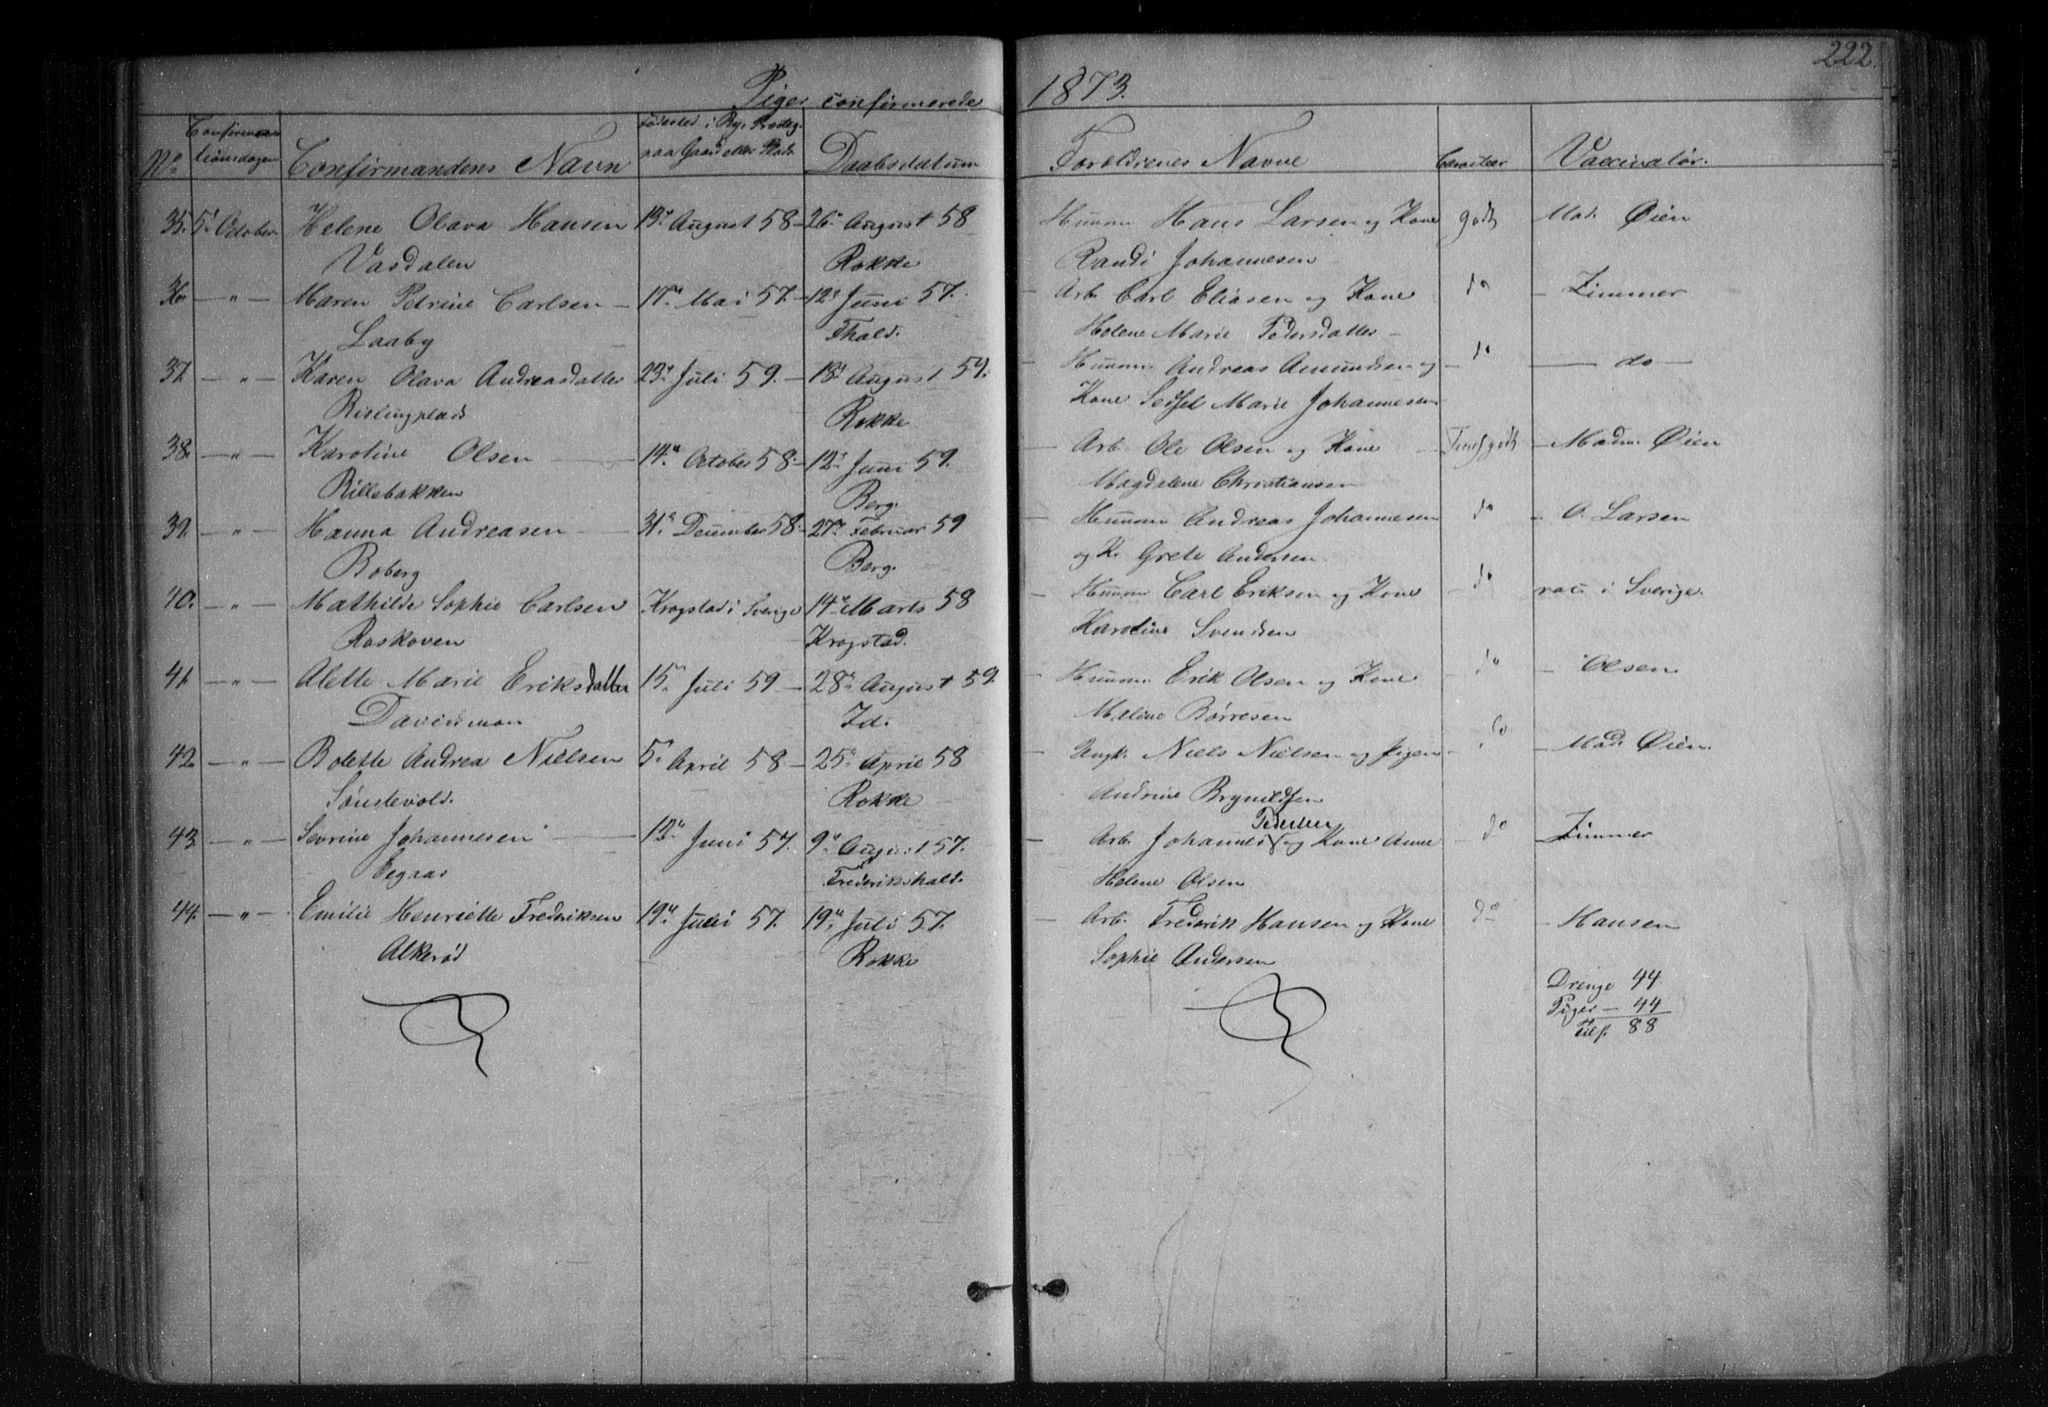 222.
Piger confirmerede 1873.
No Confirmationsdagen Confirmandens Navn Fødested i By, Præsteg. paa Gaard eller Plads Daabsdatum Forældrenes Navne Caracter Vaccinatør.
35. 5' October Helene Olava Hansen 13de August 58 - 26de August 58 Huusm Hans Larsen og Kone godt Mad. Øien
Vasdalen Rokke Randi Johannesen
36 - " - Maren Petrine Carlsen - 17de Mai 57. - 12te Juni 57. - Arb. Carl Eliasen og Kone do - Zimmer
Laaby Fhald. Helene Marie Pedersdatter -
37. - " - Karen Olava Andreasdatter 23de Juli 59. - 18de August 59. - Huusm Andreas Amundsen og - do - do -
Rislingplads Rokke Kone Sedsel Marie Johannesen
38. - " - Karoline Olsen - 14de October 58. - 12te Juni 59. - Arb. Ole Olsen og Kone - godt - Madm. Øien
Rillebakken Berg. Magdalene Christiansen
39. - " - Hanna Andreasen - 31te December 58. - 27de Februar 59 Huusm Andreas Johannesen do - O. Larsen
Boberg Berg. og K. Grete Andersen
40. - " - Mathilde Sophie Carlsen Krogstad i Sverige 14de Marts 58 - Huusm Carl Eriksen og Kone do vac. i Sverige.
Roskoven Krogstad. Karoline Svendsen
41. - " - Alette Marie Eriksdatter 15de Juli 59 - 28de August 59. Huusm Erik Olsen og Kone do - Olsen
Davidsmon Id. Meline Børresen
42. - " - Bolette Andrea Nielsen 5te April 58 - 25de April 58 - Ungk. Niels Nielsen og Pigen - do - Mad. Øien.
Sønstevold. Rokke Andrine Brynildsen
Pedersen
43. - " - Sevrine Johannesen - 12te Juni 57. 9de August 57. - Arb. Johannes og Kone Anne - do - Zimmer
Frederikshald. Helene Olsen
44. - " - Emilie Henriette Frederiksen 19de Juli 57. 19de Juli 57. - Arb. Frederik Hansen og Kone do - Hansen
Alkerød Rokke Sophie Andersen
Drenge 44.
Piger - 44
Tils. 88